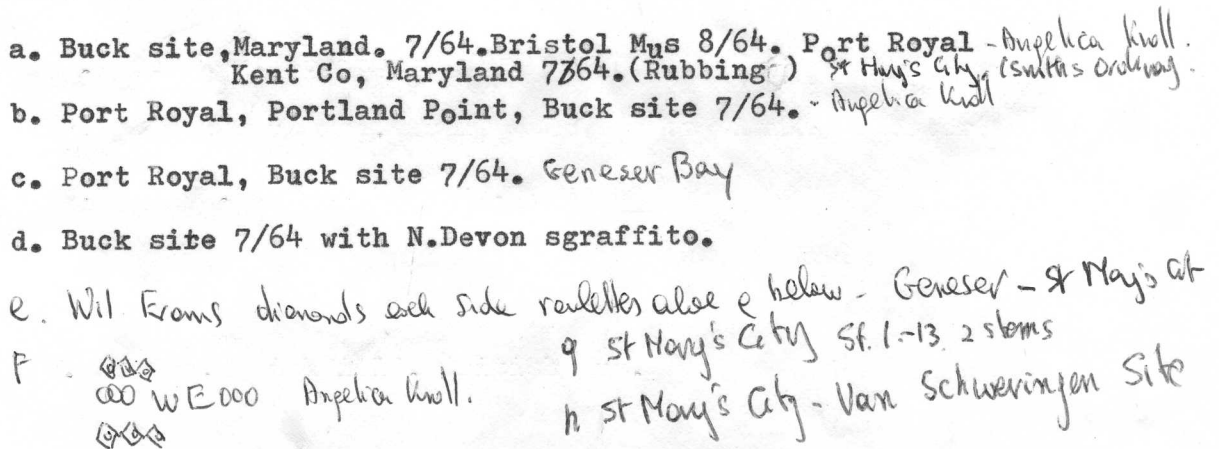 a. Buck site,Maryland. 7/64.Bristol Mus 8/64. Port Royal - Angelica Knoll.
Kent Co, Maryland 7/64.(Rubbing ) St Mary's City (Smiths Ordinary).
b. Port Royal, Portland Point, Buck site 7/64. - Angelica Knoll
c. Port Royal, Buck site 7/64. Geneser Bay
d. Buck site 7/64 with N.Devon sgraffito.
e. Wil Evans diamonds each side below - Geneser - St Mary's
F WE Angelica Knoll.
g St Mary's City St. 1-13 2 stems
h St Mary's City - Van Schweringen Site